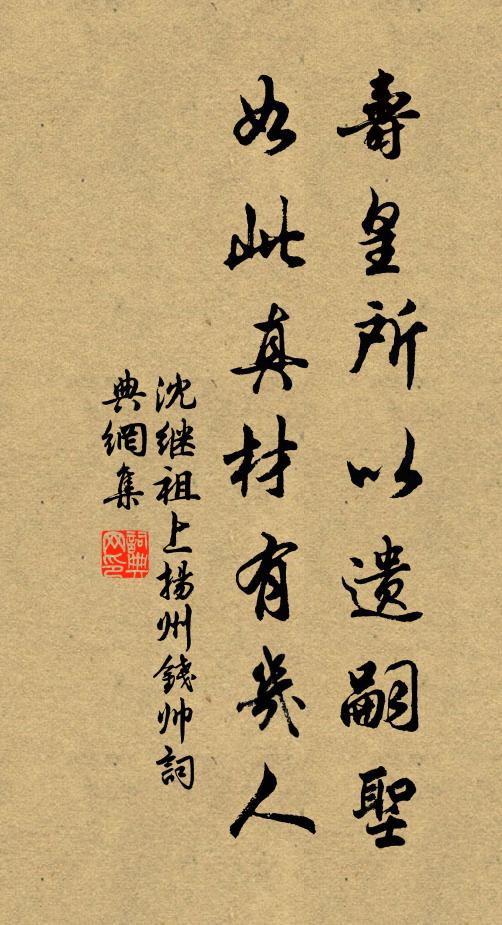 壽皇所以遺嗣聖
如此真材有幾人
沈继祖上揚州錢帅詞
典網集
詞典
网印